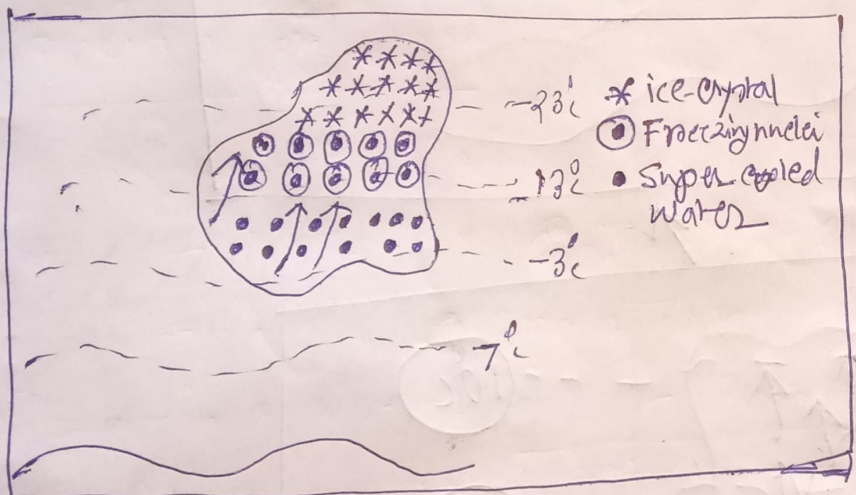 -23°c
* ice-crystal
Freezing nuclei
-13°c
• Supercooled
water
-3°c
7°c